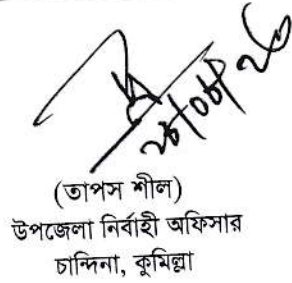 (তাপস শীল)
উপজেলা নির্বাহী অফিসার
চান্দিনা, কুমিল্লা